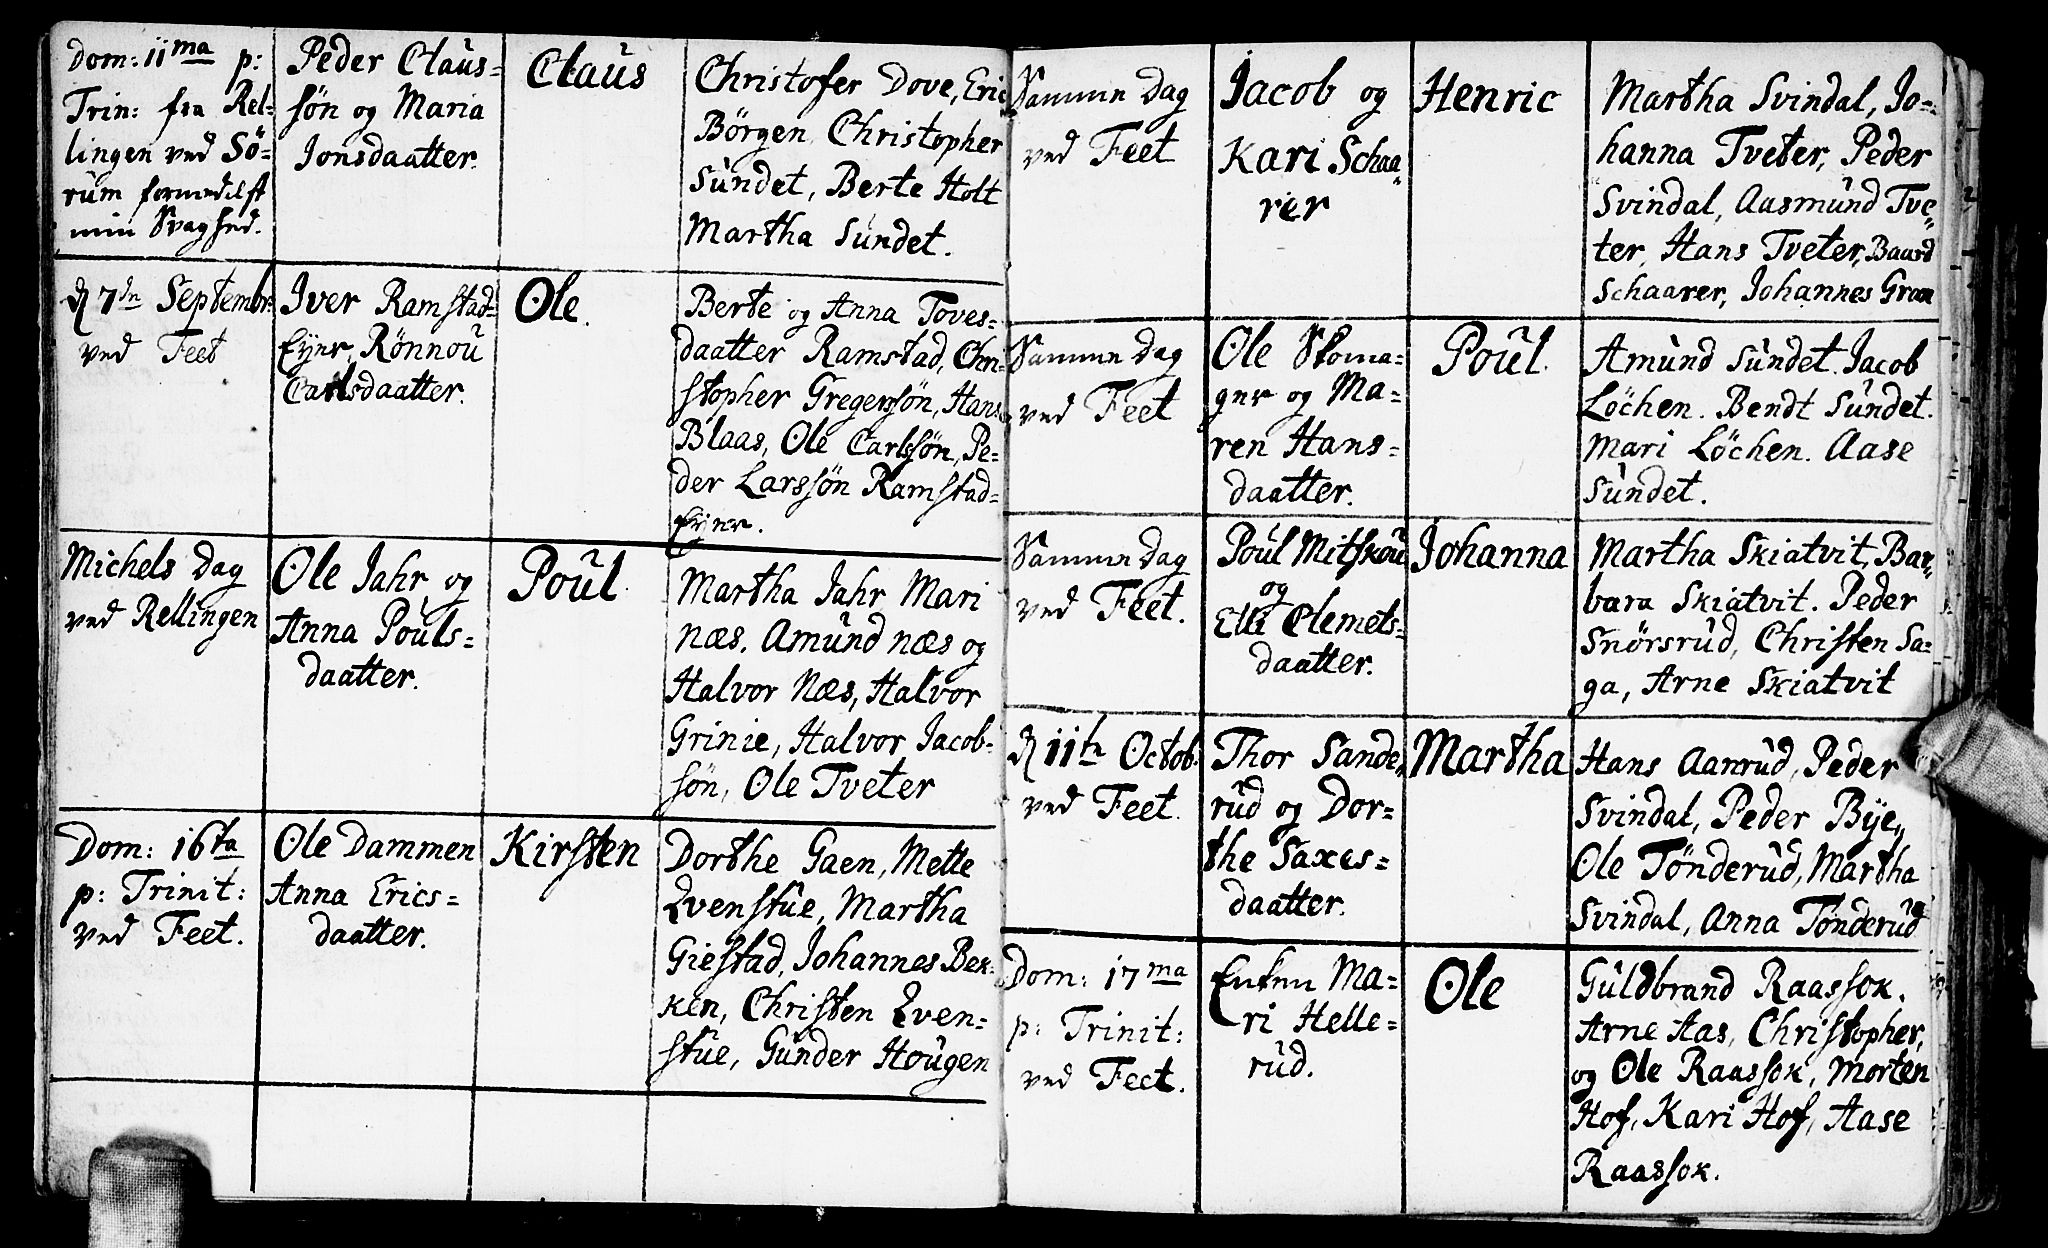 Dom: 11ma p:
Trin: fra Rel-
lingen ved Sö-
rum formedelst
min Svaghed.
Peder Claus-
søn og Maria
Jonsdaatter.
Claus
Christofer Dove, Eric
Börgen Christopher
Sundet, Berte Holt
Martha Sundet.
d 7de Septembr:
ved Feet
Iver Ramstad-
Eyer, Rönnou
Carlsdaatter.
Ole.
Berte og Anna Toves-
daatter Ramstad, Chri-
stopher Gregersøn, Hans
Blaas, Ole Carlssøn, Pe-
der Larssøn Ramstad-
Eyer.
Michels Dag
ved Rellingen
Ole Jahr og
Anna Pouls-
daatter.
Poul
Martha Jahr Mari
Næs. Amund Næs og
Halvor Næs, Halvor
Grinie, Halvor Jacob-
søn, Ole Tveter
Dom: 16ta
p: Trinit:
ved Feet.
Ole Dammen
Anna Erics-
daatter.
Kirsten
Dorthe Gaen, Mette
Qvenstue, Martha
Giestad, Johannes Bek-
ken, Christen Qven-
stue, Gunder Hougen
Samme Dag
ved Feet
Jacob og
Kari Schaa-
rer
Henric
Martha Svindal, Jo-
hanna Tveter, Peder
Svindal, Aasmund Tve-
ter, Hans Tveter, Baard
Schaarer, Johannes Graa
Samme Dag
ved Feet
Ole Skoma-
ger og Ma-
ren Hans-
daatter.
Poul.
Amund Sundet. Jacob
Löchen. Bendt Sundet.
Mari Löchen. Aase
Sundet.
Samme Dag
ved Feet.
Poul Mitskou
og
Elli Clemets-
daatter.
Johanna
Martha Skiatvit, Bar-
bara Skiatvit. Peder
Snörsrud, Christen Sa-
ga, Arne Skiatvit
d 11te Octob.
ved Feet.
Thor Sande-
rud og Dor-
the Saxes-
daatter.
Martha
Hans Aanrud, Peder
Svindal, Peder Bye,
Ole Tönderud, Martha
Svindal, Anna Tönderud
Dom: 17ma
p: Trinit:
ved Feet.
Enken Ma-
ri Helle-
rud.
Ole
Guldbrand Raassok.
Arne Aas, Christopher,
og Ole Raassok, Morten
Hof, Kari Hof, Aase
Raassok.